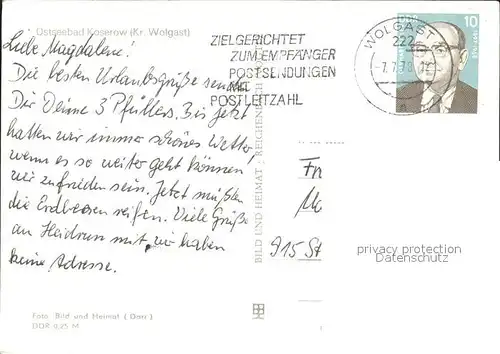 Ostseebad Koserow (Kr. Wolgast)
Liebe Magdalene!
Die besten Urlaubsgrüße senden
Dir Deine 3 Pfeillers. Bis jetzt
hatten wir immer schönes Wetter,
wenn es so weiter geht können
wir zufrieden sein. Jetzt müßten
die Erdbeeren reifen. Viele Grüße
an Heidrun mit, wir haben
keine Adresse.
Foto: Bild und Heimat (Darr)
DDR 0,25 M
BILD UND HEIMAT · REICHENBACH
ZIELGERICHTET
ZUM EMPFÄNGER
POSTSENDUNGEN
MIT
POSTLEITZAHL
WOLGAST
222
DDR
10
915 St
privacy protection
Datenschutz